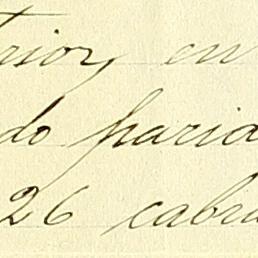 trior, en
do paria
26 cabri